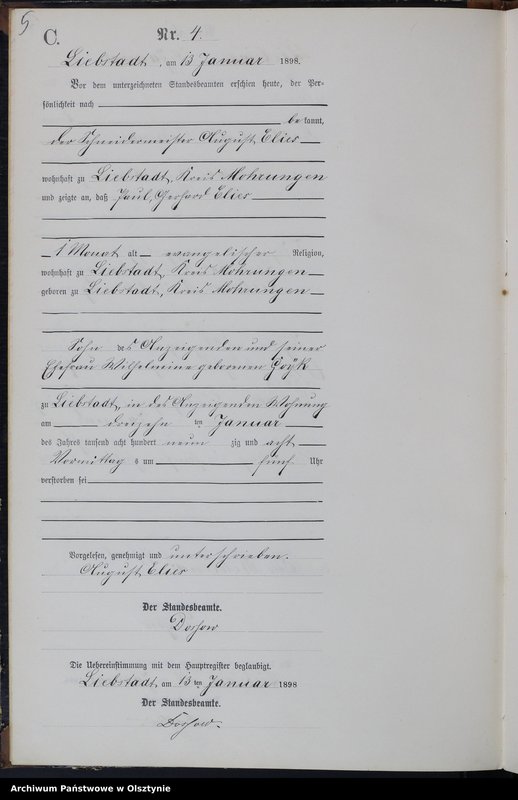 5
C.
Nr. 4.
Liebstadt, am 13 Januar 1898.
Vor dem unterzeichneten Standesbeamten erschien heute, der Per=
sönlichkeit nach
be kannt,
der Schneidermeister August Elies
wohnhaft zu Liebstadt, Kreis Mohrungen
und zeigte an, daß Paul, Gerhard Elies
1 Monat alt evangelischer Religion,
wohnhaft zu Liebstadt, Kreis Mohrungen
geboren zu Liebstadt, Kreis Mohrungen
Sohn des Anzeigenden und seiner
Ehefrau Wilhelmine geborenen
zu Liebstadt, in des Anzeigenden Wohnung
am dreizehn ten Januar
des Jahres tausend acht hundert neun zig und acht
Vormittag s um fünf Uhr
verstorben sei
Vorgelesen, genehmigt und unterschrieben.
August Elies
Der Standesbeamte.
Die Uebereinstimmung mit dem Hauptregister beglaubigt.
Liebstadt, am 13 ten Januar 1898
Der Standesbeamte.
Archiwum Państwowe w Olsztynie